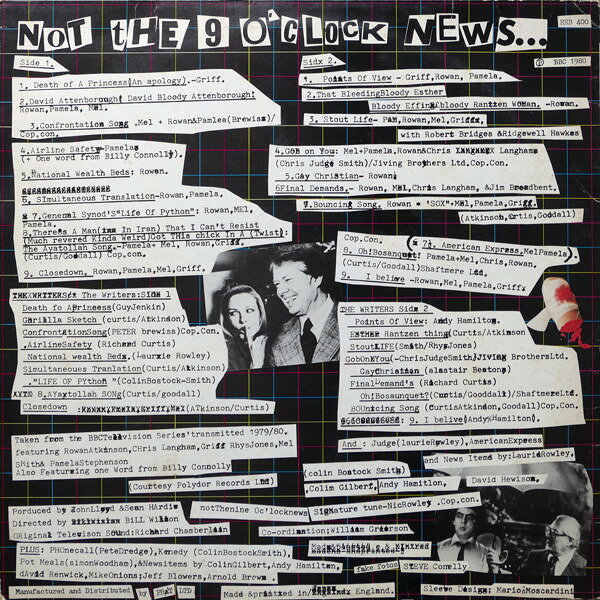 NOT tHE 9 O'CLOCK NEWS...
RKB 400
℗ BBC 1980
Side 1.
1. Death of A Princess(An apology).-Griff.
2.David Attenborough! David Bloody Attenborough!
Rowan,Pamela, Mel.
3.Confrontation Song .Mel + Rowan&Pamlea(Brewiss)/
Cop.con.
4.Airline Safety-Pamela
(+ One word from Billy Connolly).
5.National Wealth Beds: Rowan.
6. SImultaneous Translation-Rowan,Pamela.
7.General Synod'S"Life Of Python": Rowan,MEl,
Pamela.
8.ThereSs A Man(in In Iran) That I Can't Resist
(Much revered Kinda Weird)Got THis chick In A (Twist):
The Ayatollah Song.-Pamela+ Mel, Rowan,Griff.
(Curtis/Goodall) Cop.con.
9. Closedown, Rowan,Pamela,Mel,Griff.
THE WRITERS The Writers:Side 1
Death fo APrincess(GuyJenkin)
Garilla Sketch (curtis/Atkinson)
ConfrontationSong(PETER brewiss)Cop.Con.
.AirlineSafety (Richard Curtis)
National wealth Beds. (Laurxie Rowley)
Simultaneous Tranlation(Curtis/Atkison)
."LIFE OF PYthon "(ColinBostock-Smith)
8.AYaytollah SONG(Curtis/goodall)
Closedown :Rowan,Pamela,Griff,Mel(ATkinson/Curtis)
Sidx 2.
1. Points Of View - Griff,Rowan, Pamela.
2.That BleedingBloody Esther
Bloody Effing(bloody Rantzen WOman. -Rowan.
3. Stout Life- PAM,Rowan,Mel,Griff,
with Robert Bridges &Ridgewell Hawkes
4.GOB on You: Mel+Pamela,Rowan&Chris Langham
(Chris Judge Smith)/Jiving Brothers Ltd,Cop.Con.
5.Gay Christian- Rowan
6Final Demands.- Rowan, MEl,Chris Langham, &Jim Broadbent.
7.Bouncing Song. Rowan * 'SOX"+MEl,Pamela,Griff.
(Atkinson,Curtis,Goodall)
Cop.Con. (* 7½. American Express.MelPamela).
8. Oh!Bosanquet! Pamela+Mel,Chris,Rowan.
(Curtis/Goodall)Shaftmere Ltd.
9. I believe -Rowan,Mel,Pamela,Griff.
THE WRITERS Side 2
Points Of View: Andy Hamilton.
EStHER Rantzen thing(Curtis/Atkinson
StoutLIFE(Smith/RhysJones)
GobOnYou(-ChrisJudgeSmith)JIVING BrothersLtd.
GayChristian (alastair Beaton)
Final Demand's (Richard Curtis)
Oh!Bosaunquet?(Curtis/Goodall)/ShaftmereLtd.
BOUncing Song (curtisAtkinson,Goodall)Cop.Con.
: 9. I belive(AndyHamilton).
And : Judge(laurieRowley),AmericanExpress
and News Items by:LaurieRowley,
(colin Bostock Smith)
,Colim Gilbert, Andy Hamitlon, David Hewison,
Taken from the BBCTelevision Series'transmitted 1979/80.
featuring RowanATkinson,CHris Langham,Griff RhysJones,Mel
SMith& PamelaStephenson
Also Featuring one Word from Billy Connolly
(Courtesy Polydor Records Ltd)
Porduced by JohnLloyd &Sean HArdie
Directed by BILL Wilson
ORiginal Televison Sound:Richard Chamberlain
notThenine Oc'locknews Signature tune-NicRowley .Cop.con.
Co-ordination:William Grierson
PLUS: PHOnecall(PeteDredge),Kennedy (ColinBostockSmith),
Pot Meals(simonWoodham),&Newsitems by ColinGilbert,Andy Hamilton,
david Renwick,MikeOnions;Jeff Blowers,Arnold Brown
fake fotos STEVE Connelly
Manufactured and Distributed by PRdT LTD
Made &printxed in England.
Sleeve Design: MarioMoscardini